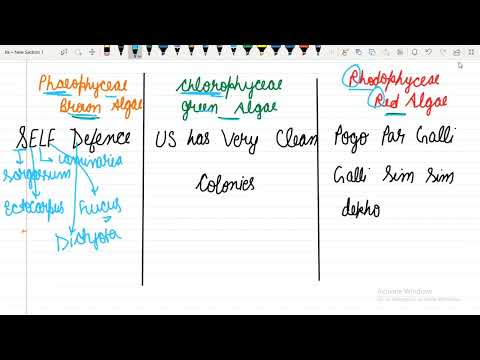 Phaeophyceae
Brown Algae
SELF Defence
Laminaria
Sargassum
Ectocarpus
Fucus
Dictyota
Chlorophyceae
green Algae
US has Very Clean
Colonies
Rhodophyceae
Red Algae
Pogo Par Galli
Galli Sim Sim
dekho
Activate Windows